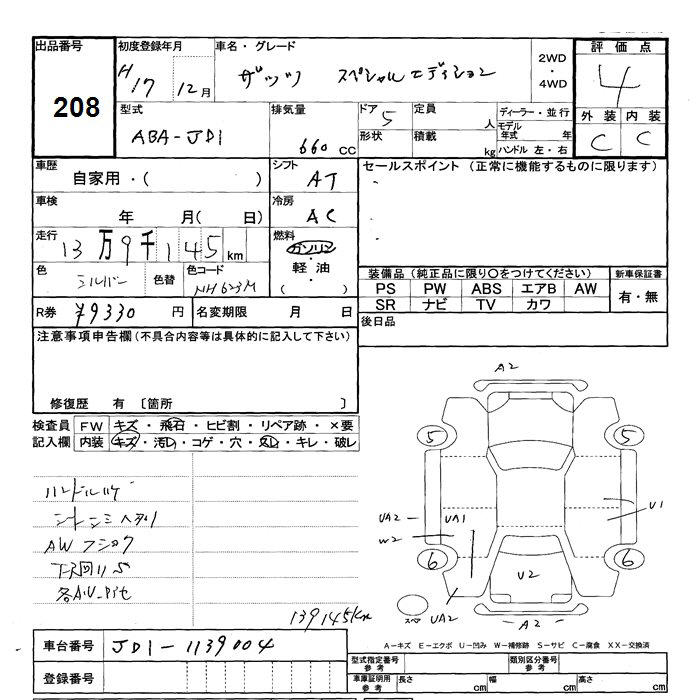 出品番号 208
初度登録年月 H17 12月
車名・グレード ザッツ スペシャルエディション
2WD・4WD
評価点 4
外装 内装
C C
型式 ABA-JD1
排気量 660 CC
ドア 5
形状
定員 人
積載 kg
ディーラー・並行
モデル年式 年
ハンドル 左・右
車歴 自家用・( )
シフト AT
セールスポイント (正常に機能するものに限ります)
車検 年 月( 日)
冷房 AC
走行 13万9千145km
燃料 ガソリン・軽油・( )
色 シルバー
色替
色コード NH623M
装備品 (純正品に限り○をつけてください)
PS PW ABS エアB AW
SR ナビ TV カワ
新車保証書
有・無
R券 ¥9330 円
名変期限 月 日
後日品
注意事項申告欄 (不具合内容等は具体的に記入して下さい)
修復歴 有 〔箇所 〕
検査員記入欄
FW キズ・飛石・ヒビ割・リペア跡・×要
内装 キズ・汚れ・コゲ・穴・スレ・キレ・破れ
ハンドルハゲ
AW フショク
下回りS
139145km
A2
5 5
UA2 UA1 U1
W2
6 6
U2
スペア UA2
A2
A-キズ E-エクボ U-凹み W-補修跡 S-サビ C-腐食 XX-交換済
車台番号 JD1-1139004
登録番号
型式指定番号参考
類別区分番号参考
車庫証明用参考 長さ cm 幅 cm 高さ cm